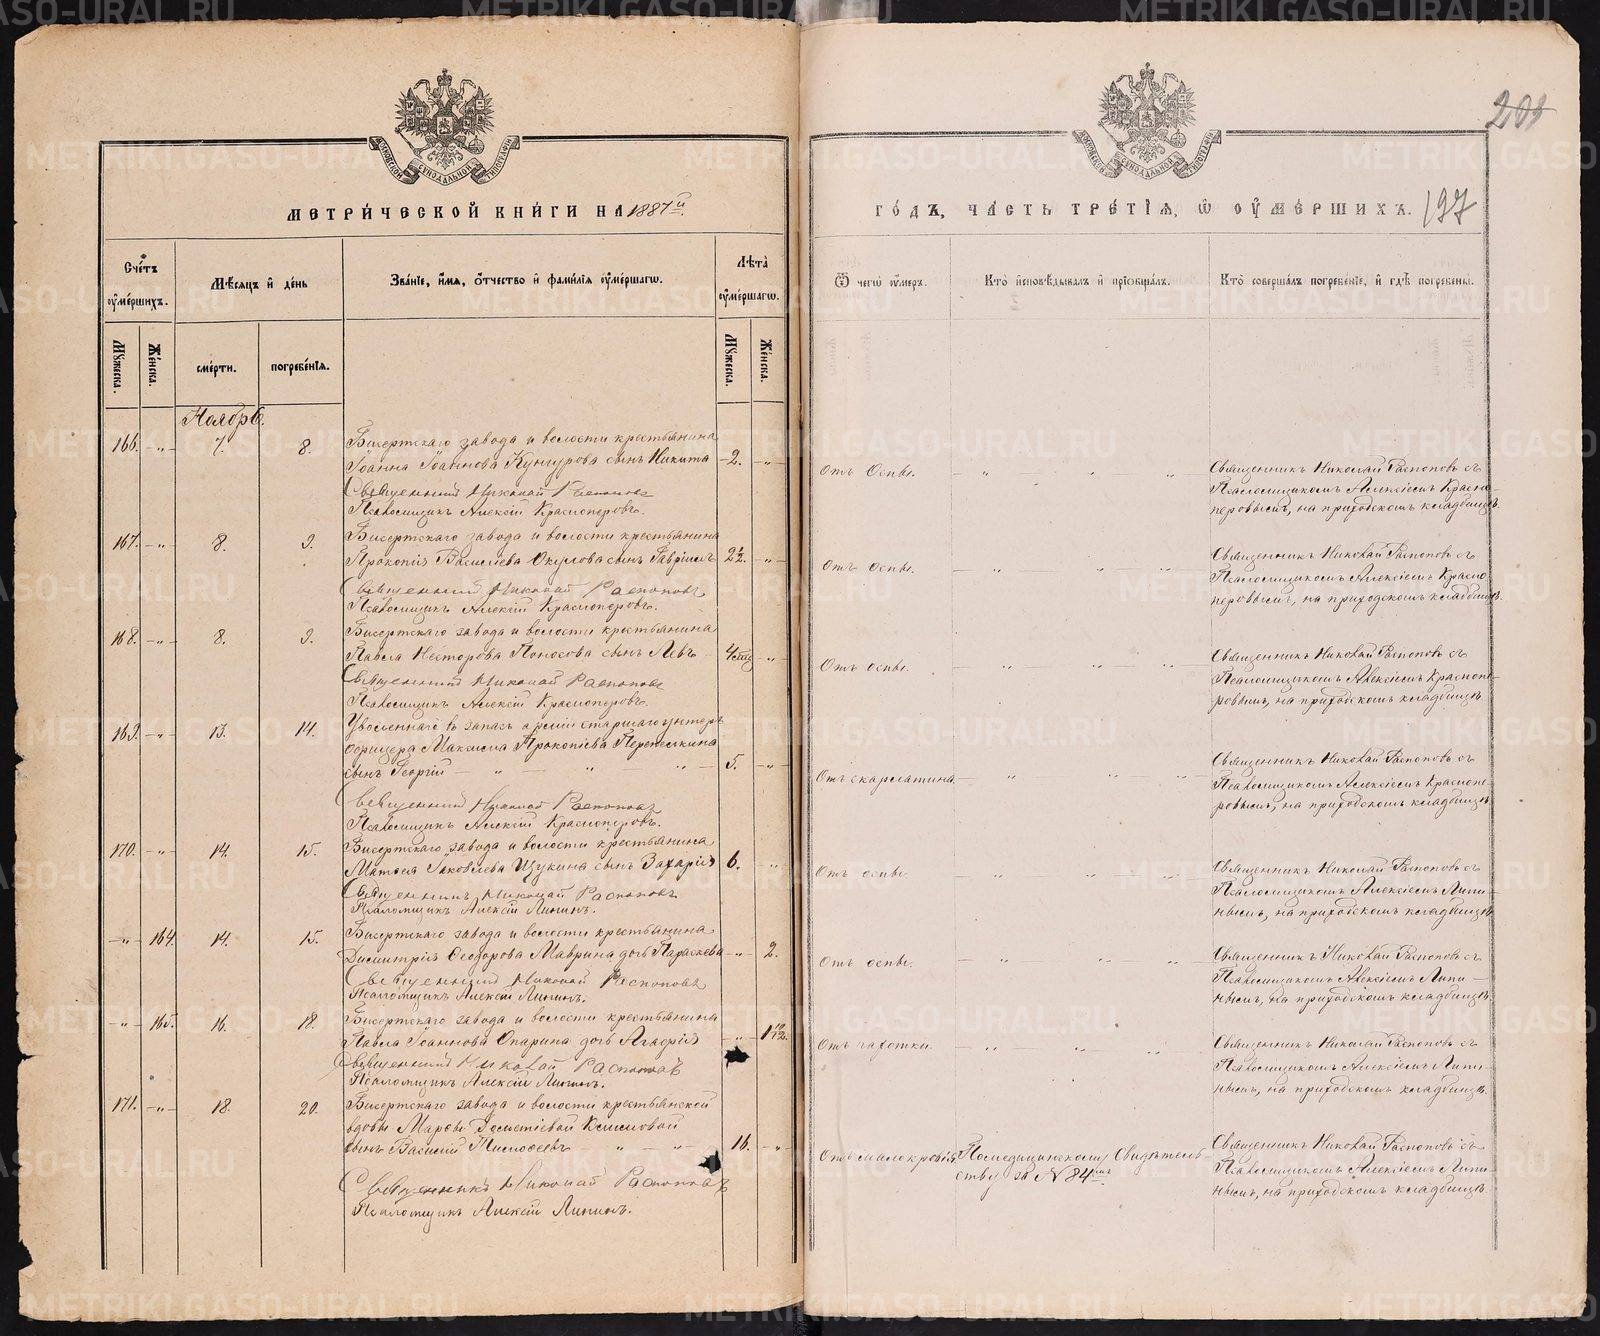 МОСКОВСКОЙ СѴНОДАЛЬНОЙ ТИПОГРАФІИ
МЕТРИ́ЧЕСКОЙ КНИ́ГИ НА 1887 й
Сче́тъ оу҆ме́ршихъ.
Мѣ́сяцъ и҆ де́нь
Зва́нїе, и҆́мя, ѻ҆́тчество и҆ фами́лїя оу҆ме́ршагѡ.
Лѣта̀ оу҆ме́ршагѡ.
Мꙋ́жеска.
Же́нска.
сме́рти.
погребе́нїя.
Мꙋ́жеска.
Же́нска.
Ноябрь.
166. -„- 7. 8. Бисертскаго завода и волости крестьянина
Іоанна Іоаннова Кунгурова сынъ Никита 2. -„-
Священникъ Николай Распоповъ
Псаломщикъ Алексій Красноперовъ.
167. -„- 8. 9. Бисертскаго завода и волости крестьянина
Прокопія Васильева Окулова сынъ Гавріилъ 2½. -„-
Священникъ Николай Распоповъ
Псаломщикъ Алексій Красноперовъ.
168. -„- 8. 9. Бисертскаго завода и волости крестьянина
Павла Несторова Поносова сынъ Левъ 4 -„-
Священникъ Николай Распоповъ
Псаломщикъ Алексій Красноперовъ.
169. -„- 13. 14. Уволеннаго въ запасъ арміи старшаго унтеръ
офицера Максима Прокопіева
сынъ Георгій — „ — „ „ — 5. -„-
Священникъ Николай Распоповъ
Псаломщикъ Алексій Красноперовъ.
170. -„- 14. 15. Бисертскаго завода и волости крестьянина
Матѳея Іаковлева Щукина сынъ Захарія 6. „
Священникъ Николай Распоповъ
Псаломщикъ Алексій Липинъ.
-„- 164. 14. 15. Бисертскаго завода и волости крестьянина
Димитрія Ѳеодорова Маврина дочь Параскева -„- 2.
Священникъ Николай Распоповъ
Псаломщикъ Алексій Липинъ.
-„- 165. 16. 18. Бисертскаго завода и волости крестьянина
Павла Іоаннова Опарина дочь Агафія -„- 1 10/12.
Священникъ Николай Распоповъ
Псаломщикъ Алексій Липинъ.
171. -„- 18. 20. Бисертскаго завода и волости крестьянской
вдовы Марѳы Климовой
сынъ Василій „ -„- 16. -„-
Священникъ Николай Распоповъ
Псаломщикъ Алексій Липинъ.
201
МОСКОВСКОЙ СѴНОДАЛЬНОЙ ТИПОГРАФІИ
ГО́ДЪ, ЧА́СТЬ ТРЕ́ТЇЯ, Ѡ҆ ОУ҆МЕ́РШИХЪ. 197
Ѿ чегѡ̀ оу҆́меръ.
Кто̀ и҆сповѣ́дывалъ и҆ прїѡбща́лъ.
Кто̀ соверша́лъ погребе́нїе, и҆ гдѣ̀ погребены̀.
Отъ оспы. — „ „ „ Священникъ Николай Распоповъ съ
Псаломщикомъ Алексіемъ Красно-
перовымъ, на приходскомъ кладбищѣ.
Отъ оспы. — „ „ „ Священникъ Николай Распоповъ съ
Псаломщикомъ Алексіемъ Красно-
перовымъ, на приходскомъ кладбищѣ.
Отъ оспы. — „ „ „ Священникъ Николай Распоповъ съ
Псаломщикомъ Алексіемъ Красно-
перовымъ, на приходскомъ кладбищѣ.
Отъ скарлатина — „ „ „ Священникъ Николай Распоповъ съ
Псаломщикомъ Алексіемъ Краснопе-
ровымъ, на приходскомъ кладбищѣ.
Отъ оспы. — „ „ „ Священникъ Николай Распоповъ съ
Псаломщикомъ Алексіемъ Липи-
нымъ, на приходскомъ кладбищѣ.
Отъ оспы. — „ „ „ Священникъ Николай Распоповъ съ
Псаломщикомъ Алексіемъ Липи-
нымъ, на приходскомъ кладбищѣ.
Отъ чахотки. — „ „ „ Священникъ Николай Распоповъ съ
Псаломщикомъ Алексіемъ Липи-
нымъ, на приходскомъ кладбищѣ.
Отъ малокровія. По медицинскому Свидѣтель- Священникъ Николай Распоповъ съ
ству за № 84 мъ. Псаломщикомъ Алексіемъ Липи-
нымъ, на приходскомъ кладбищѣ.
METRIKI.GASO-URAL.RU